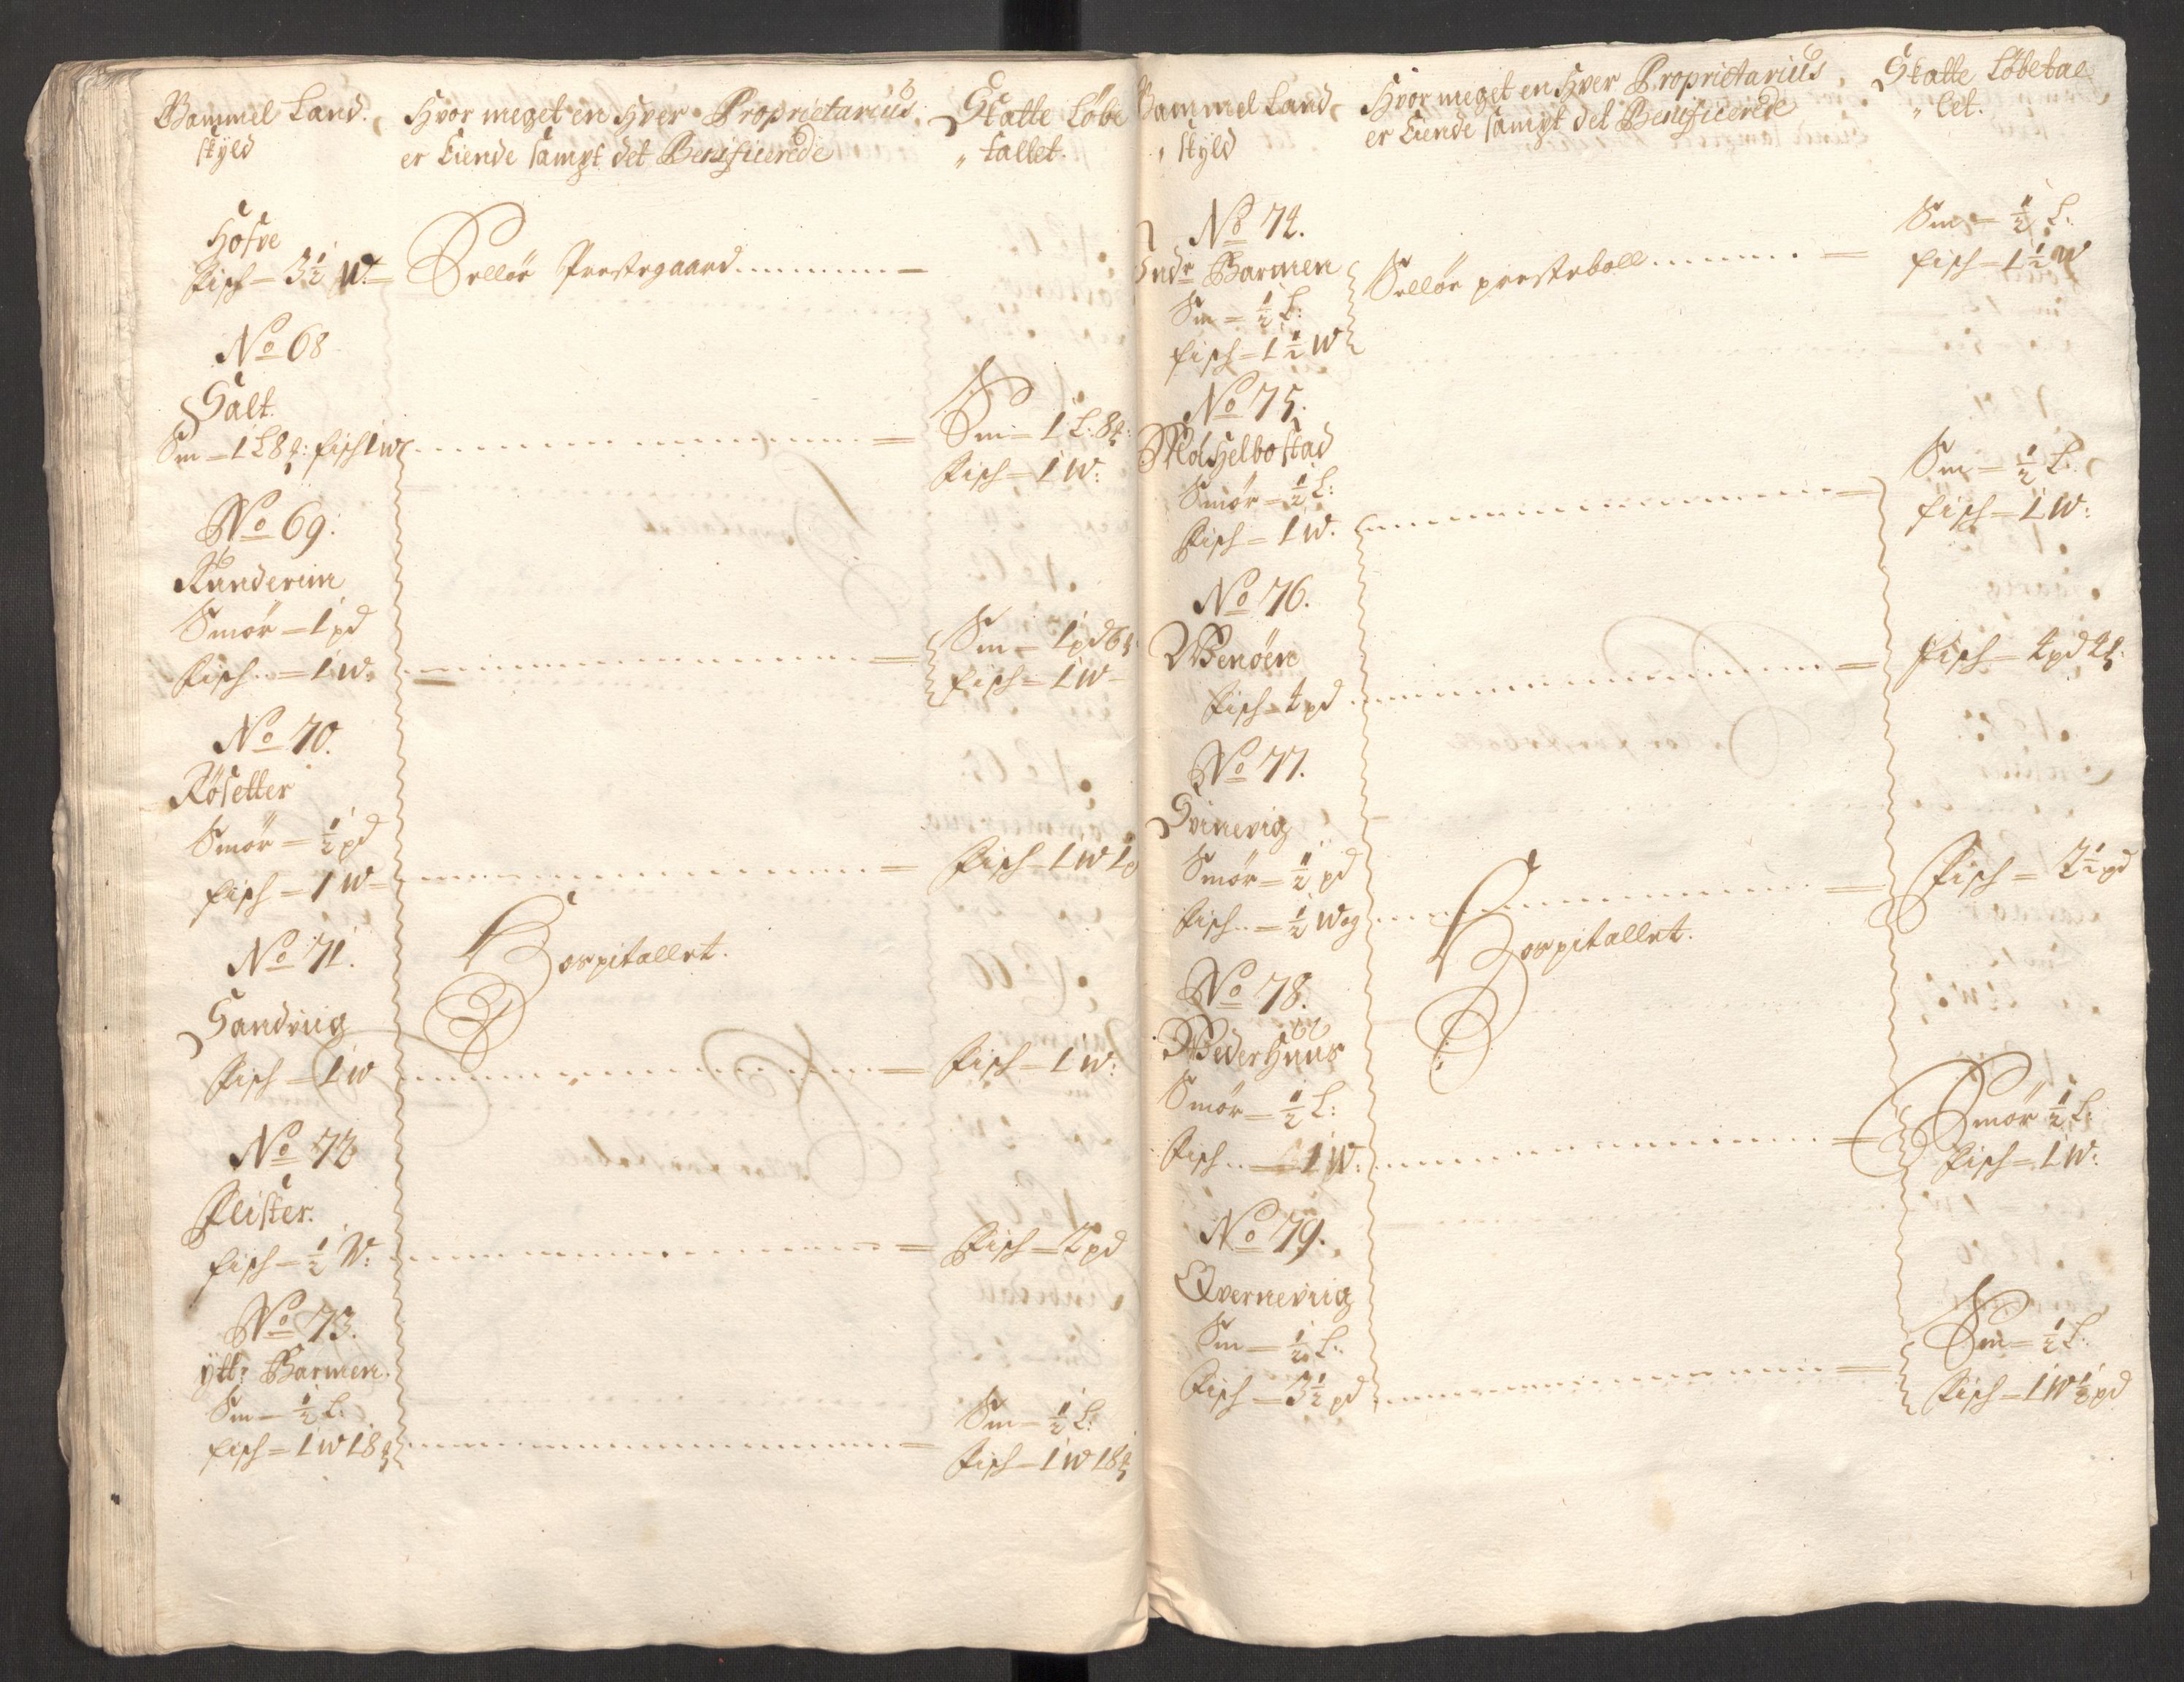 Gammel Land
skyld
Hvor meget en Hver Proprietarius
er Eiende sampt det Benificerede
Skatte Løbe
„ tallet.
Hofve
Fisch = 3½ W. =
Sellør Prestegaard =
No 68
Salt.
Sm = 1 L 8 : fisch 1 W
Sm = 1 L. 8 :
Fisch = 1 W:
No 69:
Runderim
Smör = 1 pd
Fisch = 1 W.
Sm = 1 pd 6
Fisch = 1 W
No 70.
Røsetter
Smör = ½ pd
fisch = 1 W
Fisch = 1 W 1
No 71.
Hospitallet.
Sandviig
Fisch = 1 W
Fisch = 1 W:
No 72
Flister.
fisch = ½ W:
Fisch = 2 pd
No 73.
ytt: Barmen.
Sm = ½ L:
fisch = 1 W 18
Sm = ½ L:
Fisch = 1 W 18
Gammel Land
„ skyld
Hvor meget en Hver Proprietarius
er Eiende sampt det Benificerede
Skatte Løbetal
„ let.
No 74.
Indr Barmen
Sm = ½ L:
fisch = 1½ W
Sellør presteboll =
Sm = ½ L:
fisch = 1½ W
No 75.
Smör = ½ L:
Fisch = 1 W.
Sm = ½ L.
fisch = 1 W:
No 76.
Wenøen
Fisch 4 pd
Fisch = 4 pd 4
No 77.
Svinevig
Smör = ½ pd
Fisch = ½ Wog
Fisch = 2½ pd
Hospitallet.
No 78.
Wederhuus
Smör = ½ L:
Fisch = 1 W:
Smör ½ L:
Fisch = 1 W:
No 79.
Qverneviig
Sm = ½ L:
Fisch = 3½ pd
Sm = ½ L:
Fisch = 1 W ½ pd